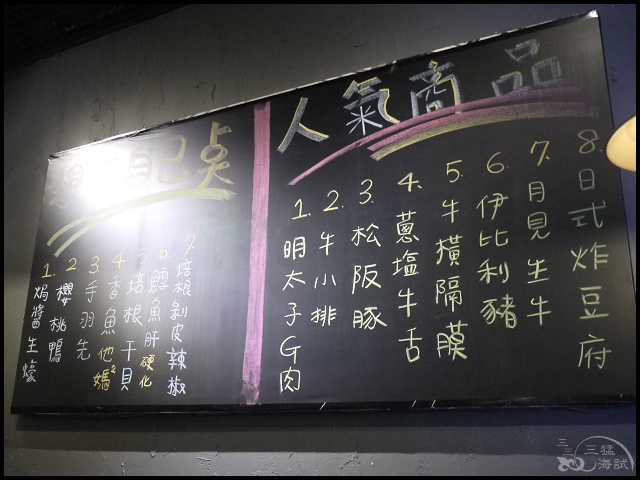 自己点
1. 焗醬生蠔
2. 櫻桃鴨
3. 手羽先
4. 香魚他媽²
5. 培根干貝
6. 鱈魚肝硬化
7. 培根剝皮辣椒
人氣商品
1. 明太子G肉
2. 牛小排
3. 松阪豚
4. 蔥塩牛舌
5. 牛橫隔膜
6. 伊比利豬
7. 月見生牛
8. 日式炸豆府
三猛海試